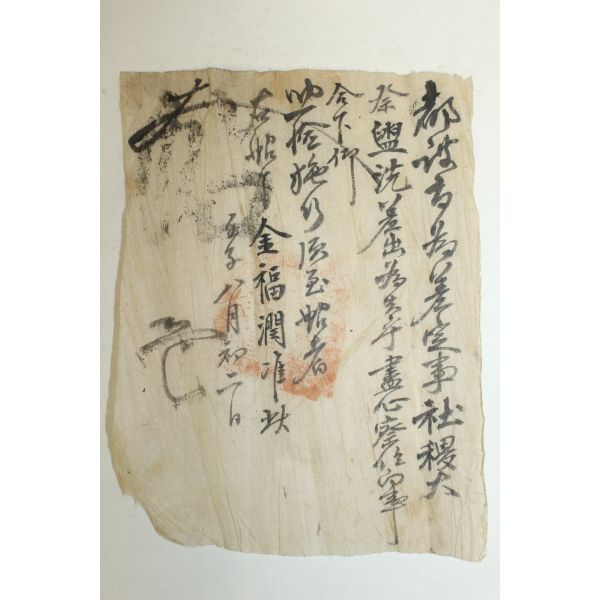 都護府爲差定事社稷大
祭盥洗差出爲去乎盡心察任向事
合下仰
照驗施行須至帖者
右帖下 金福潤 准此
子八月初二日